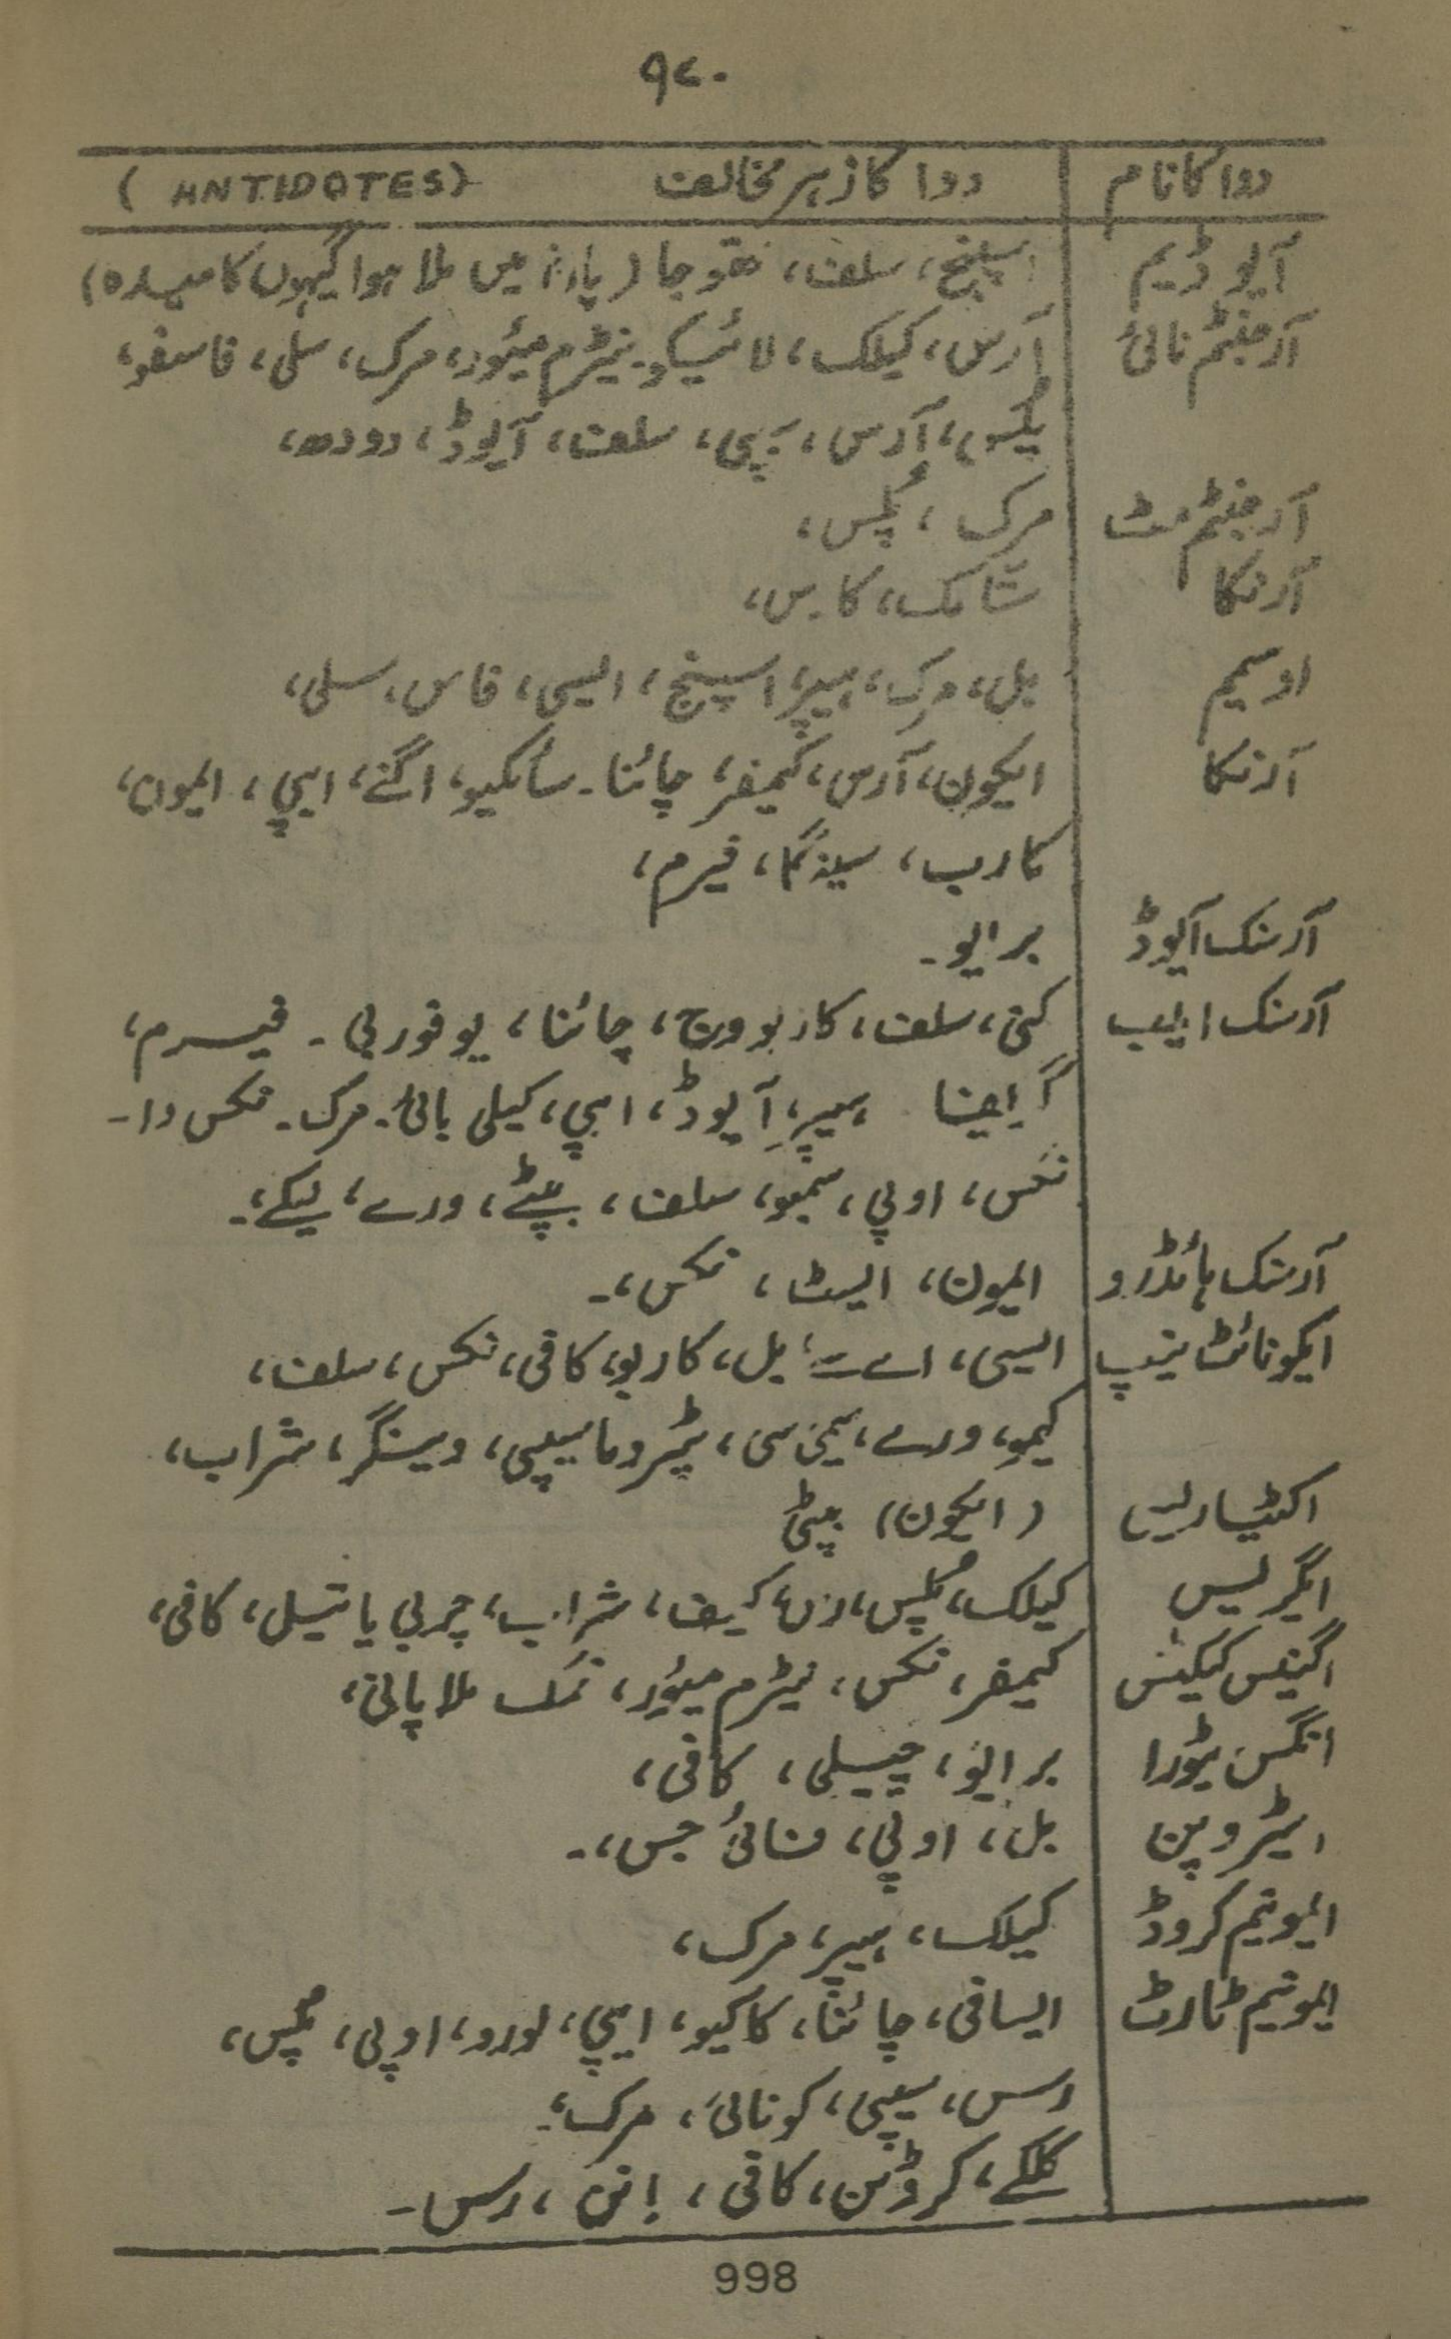 ۹۷۰
دوا کا نام دوا کا زہر مخالف (ANTIDOTES)
آیوڈیم اسپنج، سلف، تھوجا (پانی میں ملا ہوا گیہوں کا میدہ)
آرجنٹم نائی آرس، کیلک، لائیکو۔ نیٹرم میئور، مرک، سلی، فاسفو،
پلس، آرس، سیپی، سلف، آیوڈ، دودھ،
آرجنٹم مٹ مرک، پلس،
آرنکا کا۔س،
اورمیم بل، مرک، ہیپر، اسپنج، ایسی، فاس، سلی،
آرنکا ایکون، آرس، کیمفر، چائنا۔ سائکیو، اگنے، ایپی، ایمون،
کارب، سینگا، فیرم،
آرسنک آیوڈ برایو۔
آرسنک ایلب کنی، سلف، کاربو ویج، چائنا، یوفوربی۔ فیرم،
ہیپر، آیوڈ، ایپی، کیلی بائی۔ مرک۔ نکس وا۔
نکس، اوپی، سمبو، سلف، بپٹے، ورے، لیکے،۔
آرسنک ہائڈرو ایمون، ایسٹ، نکس،۔
ایکونائٹ نیپ ایسی، بل، کاربو، کافی، نکس، سلف،
کیمو، ورے، سیمی سی، پٹرو، سیپی، وینگر، شراب،
اکٹیاریس (ایکون) بپٹی
ایگریس کیلک، پلس، شراب، چربی یا تیل، کافی،
اگینس کیکٹس کیمفر، نکس، نیٹرم میئور، نمک ملا پانی،
انگس ٹورا برایو، چیلی، کافی،
ایٹروپن بل، اوپی، فائی جس،۔
ایمونیم کروڈ کیلک، ہیپر، مرک،
ایمونیم ٹارٹ ایسافی، چائنا، کاکیو، ایپی، لورو، اوپی، پلس،
رس، سیپی، کونائی، مرک،۔
کلکے، کروٹن، کافی، رس۔
998